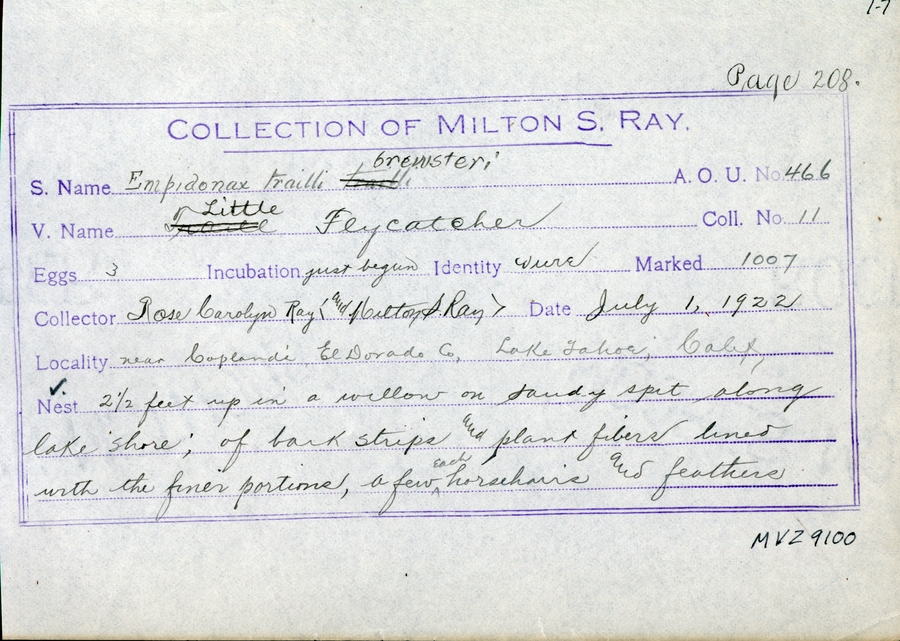 1-7
Page 208.
COLLECTION OF MILTON S. RAY.
brewsteri
S. Name Empidonax trailli trailli A. O. U. No. 466
Little
V. Name Traill Flycatcher Coll. No. 11
Eggs 3 Incubation just begun Identity sure Marked 1007
Collector Rose Carolyn Ray (and Milton S Ray) Date July 1, 1922
Locality near Copelands, El Dorado Co, Lake Tahoe, Calif,
✓
Nest 2 1/2 feet up in a willow on sandy spit along
lake shore; of bark strips and plant fibers lined
each
with the finer portions, a few horsehairs and feathers
MVZ 9100